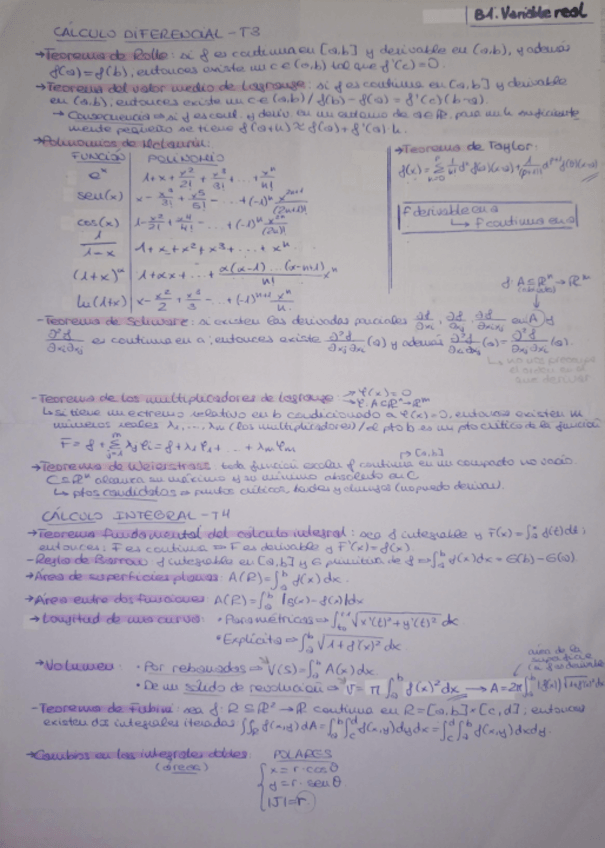 B1. Variable real
CÁLCULO DIFERENCIAL - T3
→ Teorema de Rolle: si f es continua en [a,b] y derivable en (a,b), y además
f(a)=f(b), entonces existe un c∈(a,b) tal que f'(c)=0.
→ Teorema del valor medio de Lagrange: si f es continua en [a,b] y derivable
en (a,b), entonces existe un c∈(a,b) / f(b)-f(a) = f'(c)(b-a).
→ Consecuencia ⇒ si f es cont. y deriv en un entorno de a∈R, para un h suficiente
mente pequeño se tiene f(a+h) ≈ f(a) + f'(a)·h.
→ Polinomios de McLaurin:
FUNCIÓN | POLINOMIO
e^x | 1+x+x²/2!+x³/3!+...+x^n/n!
sen(x) | x-x³/3!+x⁵/5!-...+(-1)^n x^(2n+1)/(2n+1)!
cos(x) | 1-x²/2!+x⁴/4!-...+(-1)^n x^(2n)/(2n)!
1/(1-x) | 1+x+x²+x³+...+x^n
(1+x)^α | 1+αx+...+ α(α-1)...(α-n+1)/n! x^n
ln(1+x) | x-x²/2+x³/3-...+(-1)^(n+1) x^n/n
→ Teorema de Taylor:
f derivable en a
↳ f continua en a
f: A⊆R^n → R^m
(abierto)
- Teorema de Schwarz: si existen las derivadas parciales ∂f/∂xi, ∂f/∂xj, ∂²f/∂xi∂xj en A y
∂²f/∂xi∂xj es continua en a, entonces existe ∂²f/∂xj∂xi (a) y además ∂²f/∂xi∂xj (a) = ∂²f/∂xj∂xi (a).
↳ no nos preocupa
el orden en el
que derivar
- Teorema de los multiplicadores de Lagrange: → φ(x)=0
→ φ: A⊂R^n→R^m
↳ si tiene un extremo relativo en b condicionado a φ(x)=0, entonces existen m
números reales λ1,..., λm (los multiplicadores) / el pto b es un pto crítico de la función
F = f + Σ_{j=1}^m λj φj = f+λ1φ1+...+λmφm
→ [a,b]
→ Teorema de Weierstrass: toda función escalar f continua en un compacto no vacío.
C⊆R^n alcanza su máximo y su mínimo absoluto en C
↳ ptos candidatos ⇒ puntos críticos, bordes y (no puedo derivar).
CÁLCULO INTEGRAL - T4
→ Teorema fundamental del cálculo integral: sea f integrable y F(x)=∫_a^x f(t)dt;
entonces, F es continua ⇒ F es derivable y F'(x)=f(x).
- Regla de Barrow: f integrable en [a,b] y G primitiva de f ⇒ ∫_a^b f(x)dx = G(b)-G(a).
→ Área de superficies planas: A(R)=∫_a^b f(x)dx.
→ Área entre dos funciones: A(R)=∫_a^b |g(x)-f(x)|dx
→ Longitud de una curva: • Paramétricas ⇒ ∫ √(x'(t)²+y'(t)²) dx
• Explícita ⇒ ∫_a^b √(1+f'(x)²) dx
área de la
superficie
→ Volumen: • Por rebanadas ⇒ V(S)=∫_a^b A(x)dx
• De un sólido de revolución ⇒ V=π∫_a^b f(x)² dx → A=2π∫_a^b |f(x)|√(1+f'(x)²) dx
- Teorema de Fubini: sea f: R⊆R²→R continua en R=[a,b]×[c,d], entonces
existen dos integrales iteradas ∬_R f(x,y)dA=∫_a^b∫_c^d f(x,y)dydx=∫_c^d∫_a^b f(x,y)dxdy.
→ Cambios en las integrales dobles:
(áreas)
POLARES
x = r·cosθ
y = r·senθ
|J|=r